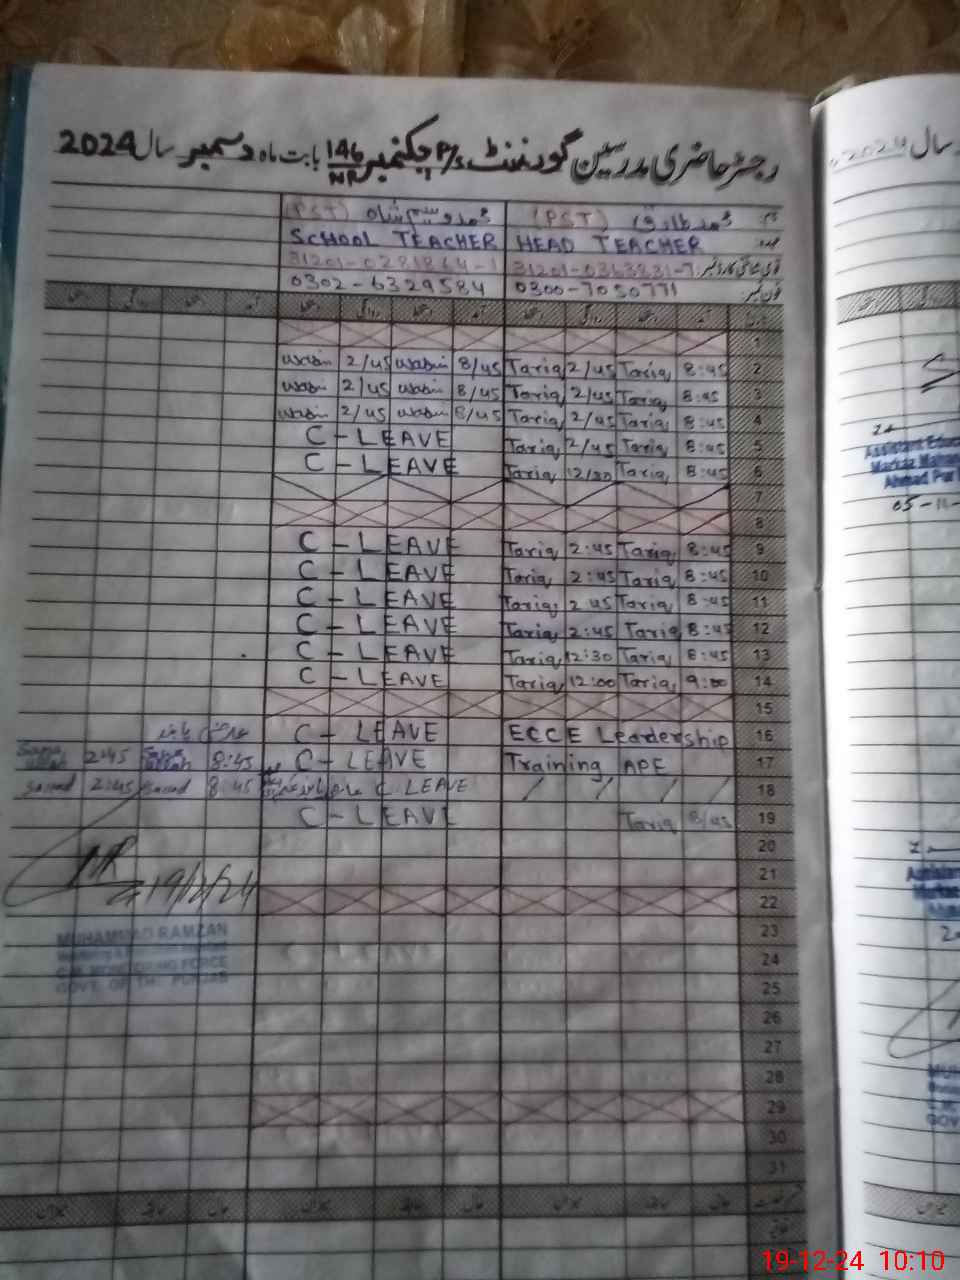 رجسٹر حاضری مدرسین گورنمنٹ P/S چکنمبر 146/NP بابت ماہ دسمبر سال 2024
محمد طارق (PST) محمد وسیم شاہ (PST)
HEAD TEACHER SCHOOL TEACHER
قومی شناختی کارڈ نمبر: 31201-0363831-7 31201-0281864-1
فون نمبر: 0300-7050771 0302-6329584
1
2 8:45 Tariq 2/45 Tariq 8/45 Wasim 2/45 Wasim
3 8:45 Tariq 2/45 Tariq 8/45 Wasim 2/45 Wasim
4 8:45 Tariq 2/45 Tariq 8/45 Wasim 2/45 Wasim
5 8:45 Tariq 2/45 Tariq C - LEAVE
6 8:45 Tariq 12/30 Tariq C - LEAVE
7
8
9 8:45 Tariq 2:45 Tariq C - LEAVE
10 8:45 Tariq 2:45 Tariq C - LEAVE
11 8:45 Tariq 2:45 Tariq C - LEAVE
12 8:45 Tariq 2:45 Tariq C - LEAVE
13 8:45 Tariq 12:30 Tariq C - LEAVE
14 9:00 Tariq 12:00 Tariq C - LEAVE
15
16 ECCE Leadership C - LEAVE
17 Training APE C - LEAVE 8:45 2:45
18 C LEAVE 8:45 Saad 2:45 Saad
19 8/45 Tariq C - LEAVE
20
21
22
23
24
25
26
27
28
29
30
31
19/12/24
MUHAMMAD RAMZAN
C.M. MONITORING FORCE
GOVT. OF THE PUNJAB
سال 2024
Assistant Educa
Markaz
Ahmad Pur
05-11-
Assistant
Markaz
19-12-24 10:10